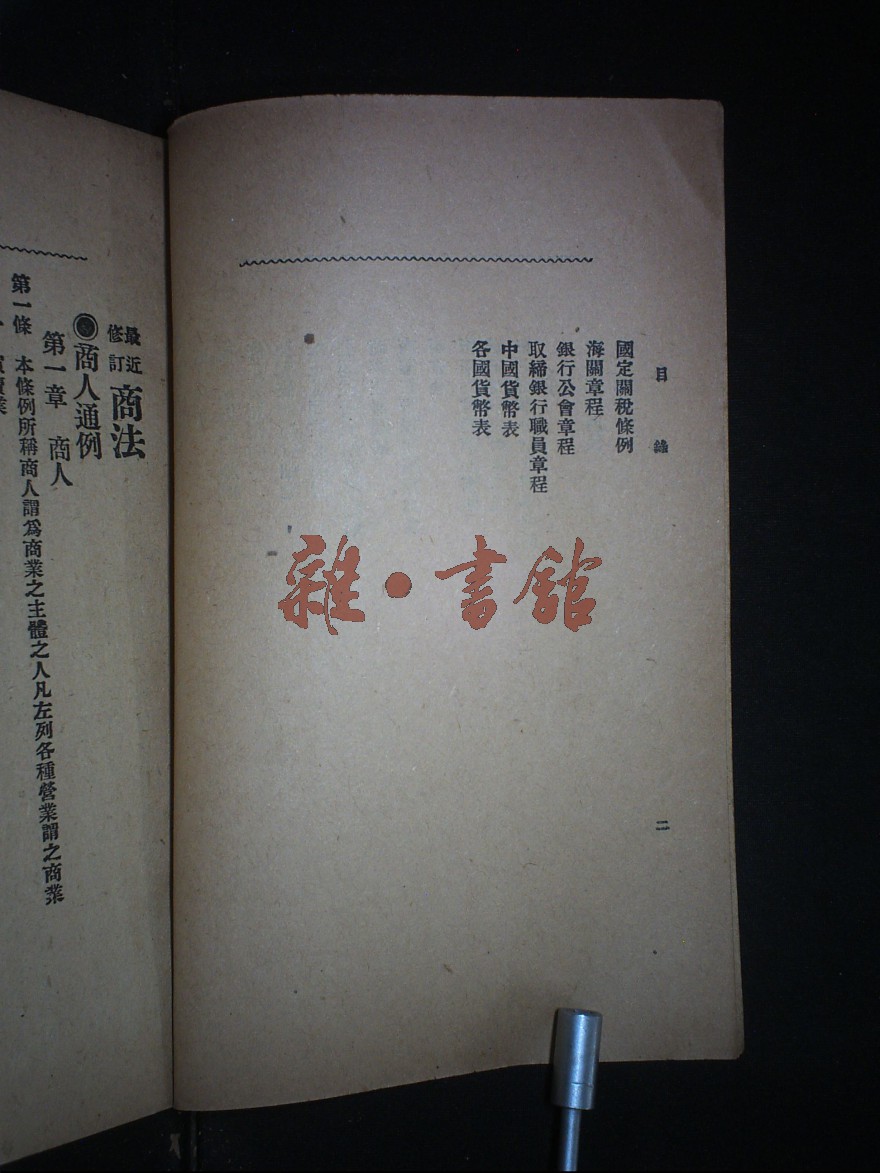 目錄
國定關稅條例
海關章程
銀行公會章程
取締銀行職員章程
中國貨幣表
各國貨幣表
二
雜•書館
最近修訂 商法
◉商人通例
第一章 商人
第一條 本條例所稱商人謂爲商業之主體之人凡左列各種營業謂之商業